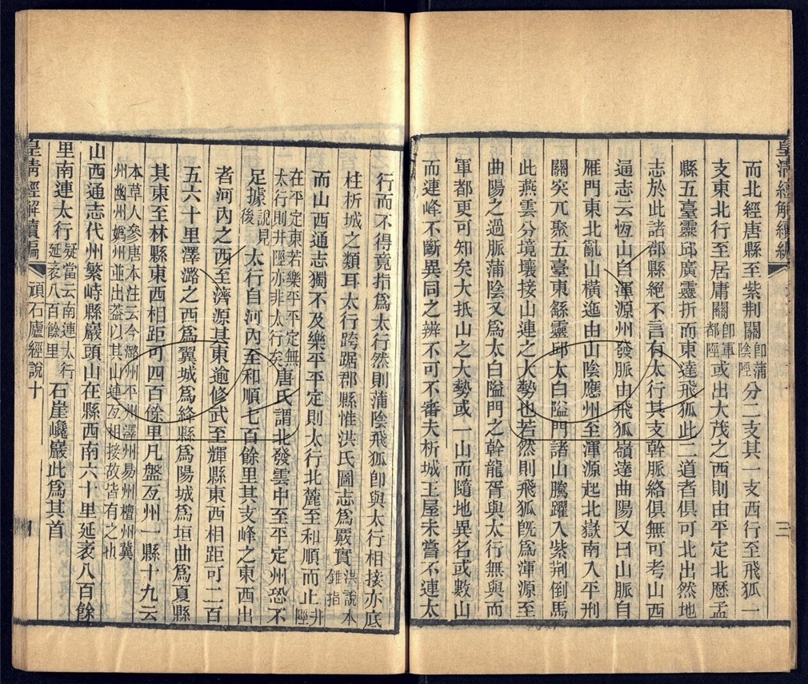 而北經唐縣至紫荆關卽蒲陰陘分二支其一支西行至飛狐一
支東北行至居庸關卽軍都陘或出大茂之西則由平定北歷盂
縣五臺靈邱廣靈折而東達飛狐此二道者俱可北出然地
志於此諸郡縣絕不言有太行其支幹脈絡俱無可考山西
通志云恆山自渾源州發脈由飛狐嶺達曲陽又曰山脈自
雁門東北亂山橫迤由山陰應州至渾源起北嶽南入平刑
關突兀聚五臺東繇靈邱太白隘門諸山騰躍入紫荆倒馬
此燕雲分境壤接山連之大勢也若然則飛狐旣爲渾源至
曲陽之過脈蒲陰又爲太白隘門之幹龍胥與太行無與而
軍都更可知矣大抵山之大勢或一山而隨地異名或數山
而連峰不斷異同之辨不可不審夫析城王屋未嘗不連太
行而不得竟指爲太行然則蒲陰飛狐卽與太行相接亦底
柱析城之類耳太行跨踞郡縣惟洪氏圖志爲嚴實洪說本錐指
而山西通志獨不及樂平平定則太行北麓至和順而止井陘
在平定東若樂平平定無太行則井陘亦非太行矣唐氏謂北發雲中至平定州恐不
足據說見後太行自河內至和順七百餘里其支峰之東西出
者河內之西至濟源其東逾修武至輝縣東西相距可二百
五六十里澤潞之西爲翼城爲絳縣爲陽城爲垣曲爲夏縣
其東至林縣東西相距可四百餘里凡盤亙州一縣十九云
本草人參唐本注云今潞州平州澤州易州檀州冀州幽州嬀州並出蓋以其山連亙相接故皆有之也
山西通志代州繁峙縣巖頭山在縣西南六十里延袤八百餘
里南連太行疑當云南連太行延袤八百餘里石崖巉巖此爲其首
皇淸經解續編 頑石廬經說十
皇淸經解續編
三